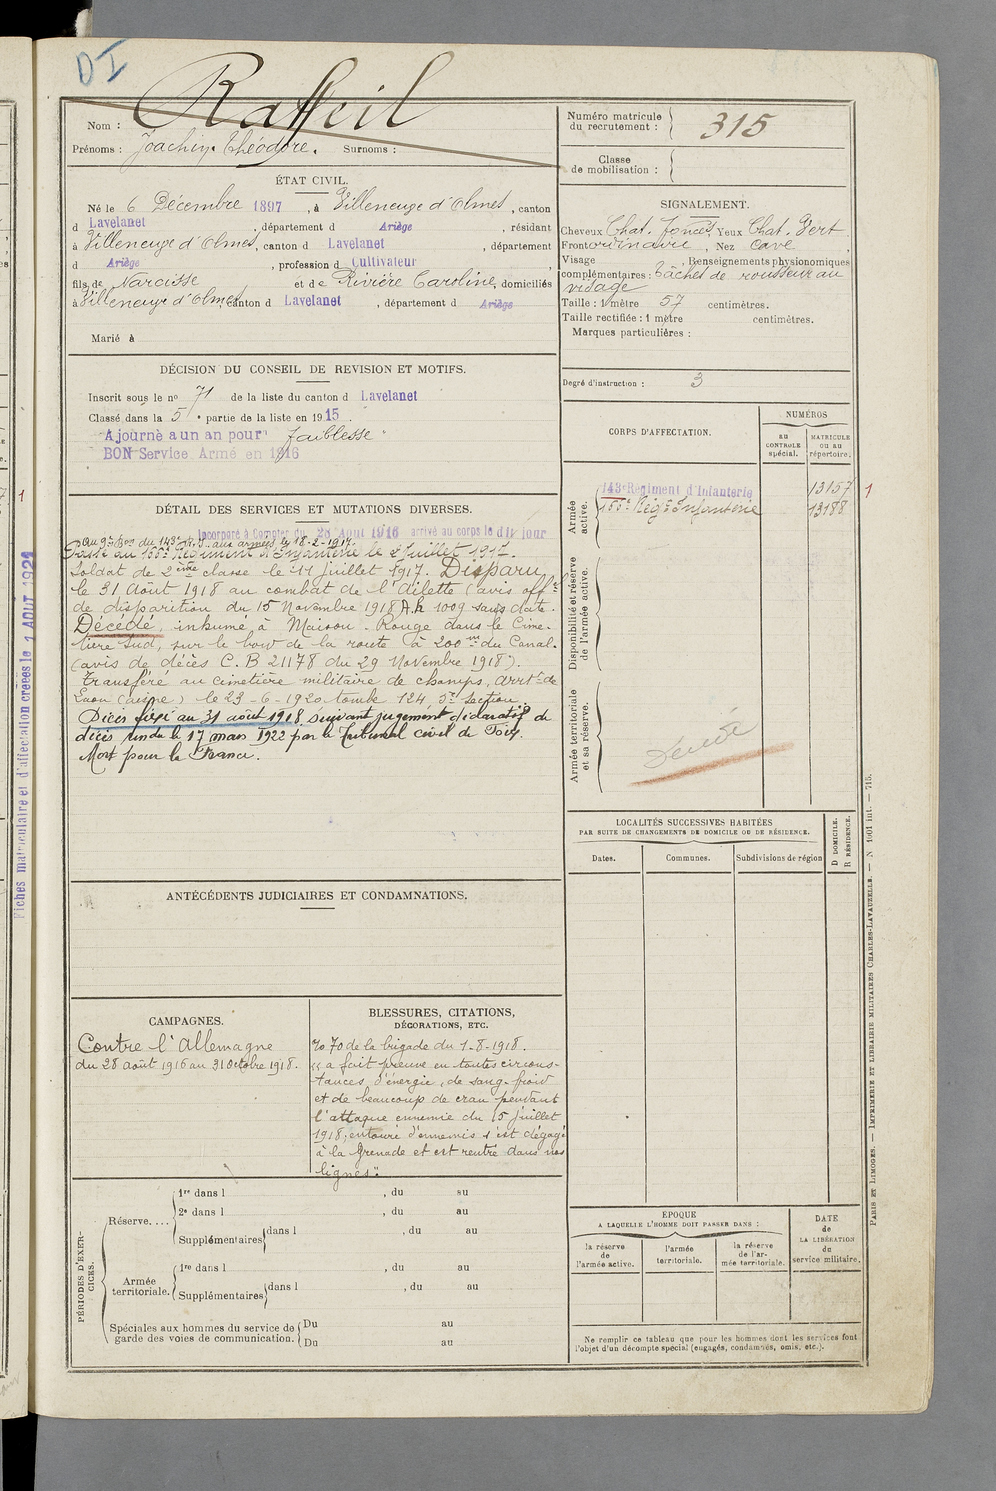 DI
Raffeil
Nom :
Prénoms : Joachim Théodore. Surnoms :
Numéro matricule du recrutement : 315
Classe de mobilisation :
ÉTAT CIVIL.
Né le 6 Décembre 1897, à Villeneuve d'Olmes, canton
d Lavelanet, département d Ariège, résidant
à Villeneuve d'Olmes, canton d Lavelanet, département
d Ariège, profession d Cultivateur
fils de Narcisse et de Rivière Caroline, domiciliés
à Villeneuve d'Olmes canton d Lavelanet, département d Ariège
Marié à
SIGNALEMENT.
Cheveux Chat. foncés, Yeux Chat. Vert
Front ordinaire, Nez cave
Visage , Renseignements physionomiques
complémentaires : Tâches de rousseur au
visage
Taille : 1 mètre 57 centimètres.
Taille rectifiée : 1 mètre centimètres.
Marques particulières :
Degré d'instruction : 3
DÉCISION DU CONSEIL DE REVISION ET MOTIFS.
Inscrit sous le no 71 de la liste du canton d Lavelanet
Classé dans la 5e partie de la liste en 1915.
Ajourné a un an pour faiblesse
BON Service Armé en 1916
CORPS D'AFFECTATION.
NUMÉROS
AU CONTRÔLE spécial.
MATRICULE OU AU répertoire.
Armée active.
143e Régiment d'Infanterie 13157
166e Régt Infanterie 13188
1
1
Disponibilité et réserve de l'armée active.
Armée territoriale et sa réserve.
DÉTAIL DES SERVICES ET MUTATIONS DIVERSES.
Incorporé à Compter du 28 Août 1916 arrivé au corps le dit jour
Au 9e Bon du 143e R.I. aux armées le 18-2-1917.
Passé au 166e Régiment d'Infanterie le 2 Juillet 1917.
Soldat de 2ème classe le 11 Juillet 1917. Disparu
le 31 Août 1918 au combat de l'Ailette (avis offel
de disparition du 15 Novembre 1918 A.h 1009 sans date.
Décédé, inhumé à Maison-Rouge dans le Cime-
tière Sud, sur le bord de la route à 200m du Canal.
(avis de décès C.B 21178 du 29 Novembre 1918).
Transféré au cimetière militaire de champs, arrt de
Laon (aisne) le 23-6-1920 tombe 124, 5e section.
Décès fixé au 31 août 1918 suivant jugement déclaratif de
décès rendu le 17 mars 1922 par le Tribunal civil de Foix.
Mort pour la France.
Fiches matriculaire et d'affectation créées le 1 AOUT 1921
LOCALITÉS SUCCESSIVES HABITÉES
PAR SUITE DE CHANGEMENTS DE DOMICILE OU DE RÉSIDENCE.
Dates.
Communes.
Subdivisions de région
D DOMICILE.
R RÉSIDENCE.
ANTÉCÉDENTS JUDICIAIRES ET CONDAMNATIONS.
CAMPAGNES.
Contre l'Allemagne
du 28 août 1916 au 31 Octobre 1918.
BLESSURES, CITATIONS,
DÉCORATIONS, ETC.
No 70 de la brigade du 1-8-1918.
"a fait preuve en toutes circons-
tances d'énergie, de sang-froid
et de beaucoup de cran pendant
l'attaque ennemie du 15 juillet
1918; entouré d'ennemis s'est dégagé
à la Grenade et est rentré dans nos
lignes".
PÉRIODES D'EXERCICES.
Réserve....
1re dans l , du au
2e dans l , du au
Supplémentaires dans l , du au
Armée territoriale.
1re dans l , du au
Supplémentaires dans l , du au
Spéciales aux hommes du service de garde des voies de communication.
Du au
Du au
ÉPOQUE
A LAQUELLE L'HOMME DOIT PASSER DANS :
la réserve de l'armée active.
l'armée territoriale.
la réserve de l'armée territoriale.
DATE de LA LIBÉRATION du service militaire.
Ne remplir ce tableau que pour les hommes dont les services font
l'objet d'un décompte spécial (engagés, condamnés, omis, etc.).
PARIS ET LIMOGES. — IMPRIMERIE ET LIBRAIRIE MILITAIRES CHARLES-LAVAUZELLE. — N 1001 int. — 715.